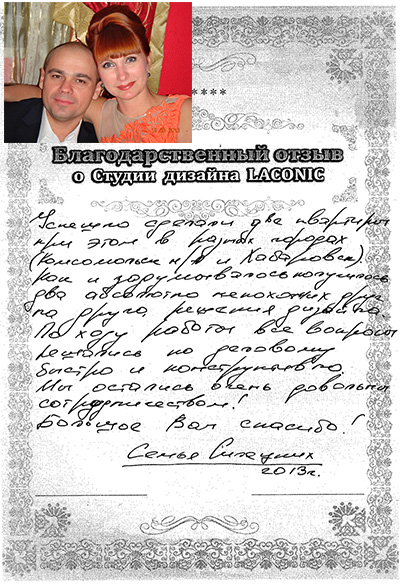 *****
Благодарственный отзыв
о Студии дизайна LACONIC
Успешно сделали две квартиры
при этом в разных городах
(Комсомольск н/А и Хабаровск).
Как и задумывалось получилось
два абсолютно непохожих друг
на друга, решения дизайна.
По ходу работы все вопросы
решались по деловому
быстро и конструктивно.
Мы остались очень довольны
сотрудничеством!
Большое Вам спасибо!
Семья
2013г.